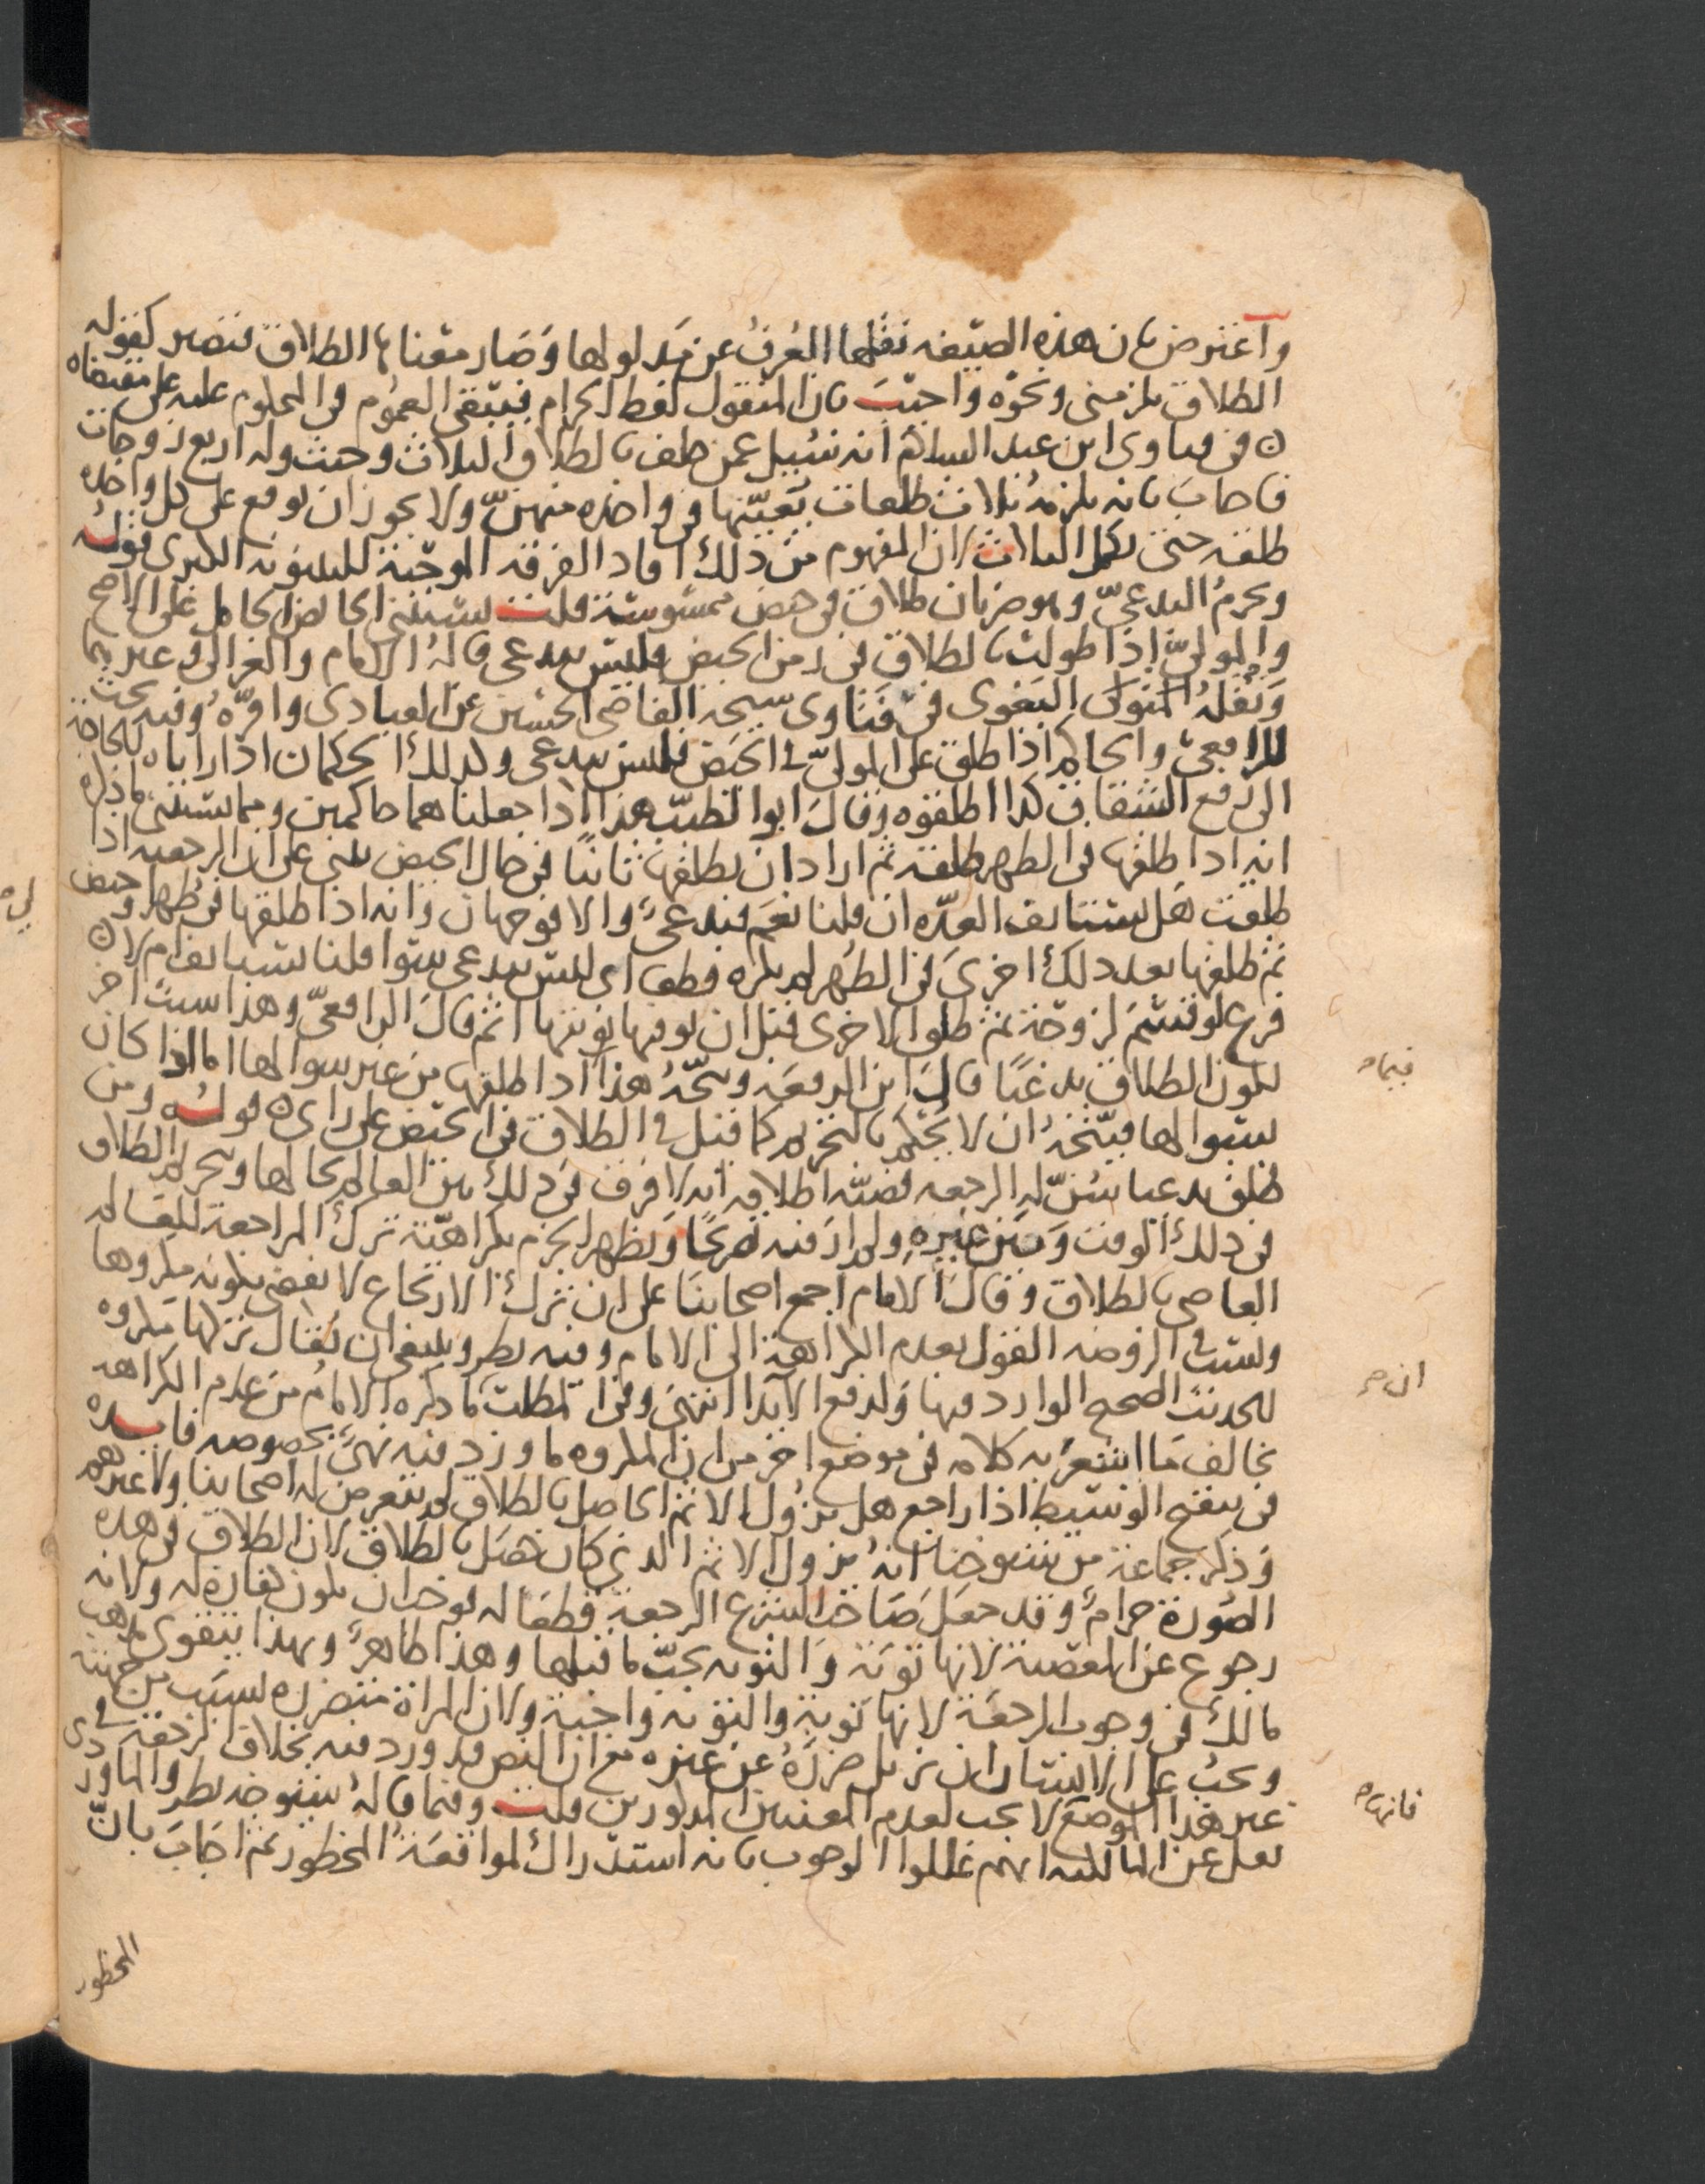 واعترض بان هذه الصيغه نقلها العرف عن مدلولها وصار معناها الطلاق فتصير كقوله
الطلاق يلزمني ونحوه واجيب بان المنقول لفظ الحرام فيبقى العموم في المحلوم عليه على مقتضاه
ن في فتاوى ابن عبد السلام انه سئيل عمن حلف بالطلاق الثلاث وحنث وله اربع زوجات
فاجاب بانه يلزمه ثلاث طلقات يعينها في واحده منهن ولا يجوز ان يوقع على كل واحده
طلقه حتى يكمل الثلاث لان المفهوم من ذلك افاد الفرقه الموجبة للبينونه الكبرى قوله
ويحرم البدعي وهو ضربان طلاق في حيض ممسوسة قلت يستثنى الحايض الحامل على الاصح
والمولي اذا طولب بالطلاق في زمن الحيض فليس ببدعي قاله الامام والغزالي وغيرهما
ونقله المتولى البغوى في فتاوى شيخه القاضي الحسين عن العبادى واقره وفيه بحث
للرافعي والحاكم اذا طلق على المولي في الحيض فليس ببدعي وكذلك الحكمان اذا راياه للحاجة
الى رفع الشقاق كذا اطلقوه وقال ابو الطيب هذا اذا جعلناهما حاكمين ومما يستثنى ما ذكره
انه اذا طلقها في الطهر طلقه ثم اراد ان يطلقها ثانيا في حال الحيض يبنى على ان الرجعيه اذا
طلقت هل يستانف العده ان قلنا نعم فبدعي والا فوجهان وانه اذا طلقها في طهر او حيض
ثم طلقها بعد ذلك اخرى في الطهر لم يكره قطعا اى ليس ببدعي سوا قلنا تستانف ام لا ن
فرع لو قسم لزوجة ثم طلق الاخرى قبل ان يوفيها نوبتها اثم قال الرافعي وهذا سبب اخر
لكون الطلاق بدعيا قال ابن الرفعه ويتجه هذا اذا طلقها من غير سوالها اما اذا كان
بسوالها فيتجه ان لا يحكم بالتحريم كما قيل في الطلاق في الحيض على راى ن قوله ومن
طلق بدعيا سن له الرجعه قضيته اطلاقه انه لا فرق في ذلك بين العالم بحالها وتحريم الطلاق
في ذلك الوقت وبين غيره ولم ار فيه تصريحا ويظهر الجزم بكراهية ترك المراجعة للعالم
العاصي بالطلاق وقال الامام اجمع اصحابنا على ان ترك الارتجاع لا نقضي بكونه مكروها
ونسب في الروضه القول بعدم الكراهة الى الامام وفيه نظر وينبغي ان يقال تركها مكروه
للحديث الصحيح الوارد فيها ولدفع الايذا انتهى وفي المطلب ما ذكره الامام من عدم الكراهه
يخالف ما اشعر به كلامه في موضع اخر من ان المكروه ما ورد فيه نهي بخصوصه فايده
في تنقيح الوسيط اذا راجع هل يزول الاثم الحاصل بالطلاق لم يتعرض له اصحابنا ولا غيرهم
وذكر جماعة من شيوخنا انه يزول الاثم الذي كان حصل بالطلاق لان الطلاق في هذه
الصورة حرام وقد جعل صاحب الشرع الرجعة قطعا له فوجب ان يكون كفارة له ولانه
رجوع عن المعصية لانها توبة والتوبه تجب ما قبلها وهذا ظاهر وبهذا يتقوى مذهب
مالك في وجوب الرجعة لانها توبة والتوبه واجبة ولان المراة تتضرر بسبب من جهته
ويجب على الانسان ان يزيل ضرره عن غيره مع ان النص قد ورد فيه بخلاف الرجعة في
غير هذا الموضع لا يجب لعدم المعنيين المذكورين قلت وفيما قاله شيوخه نظر والماوردى
نقل عن المالكيه انهم عللوا الوجوب بانه استدراك لمواقعة المحظور ثم اجاب بان
المحظور
فيما
ان
فانها